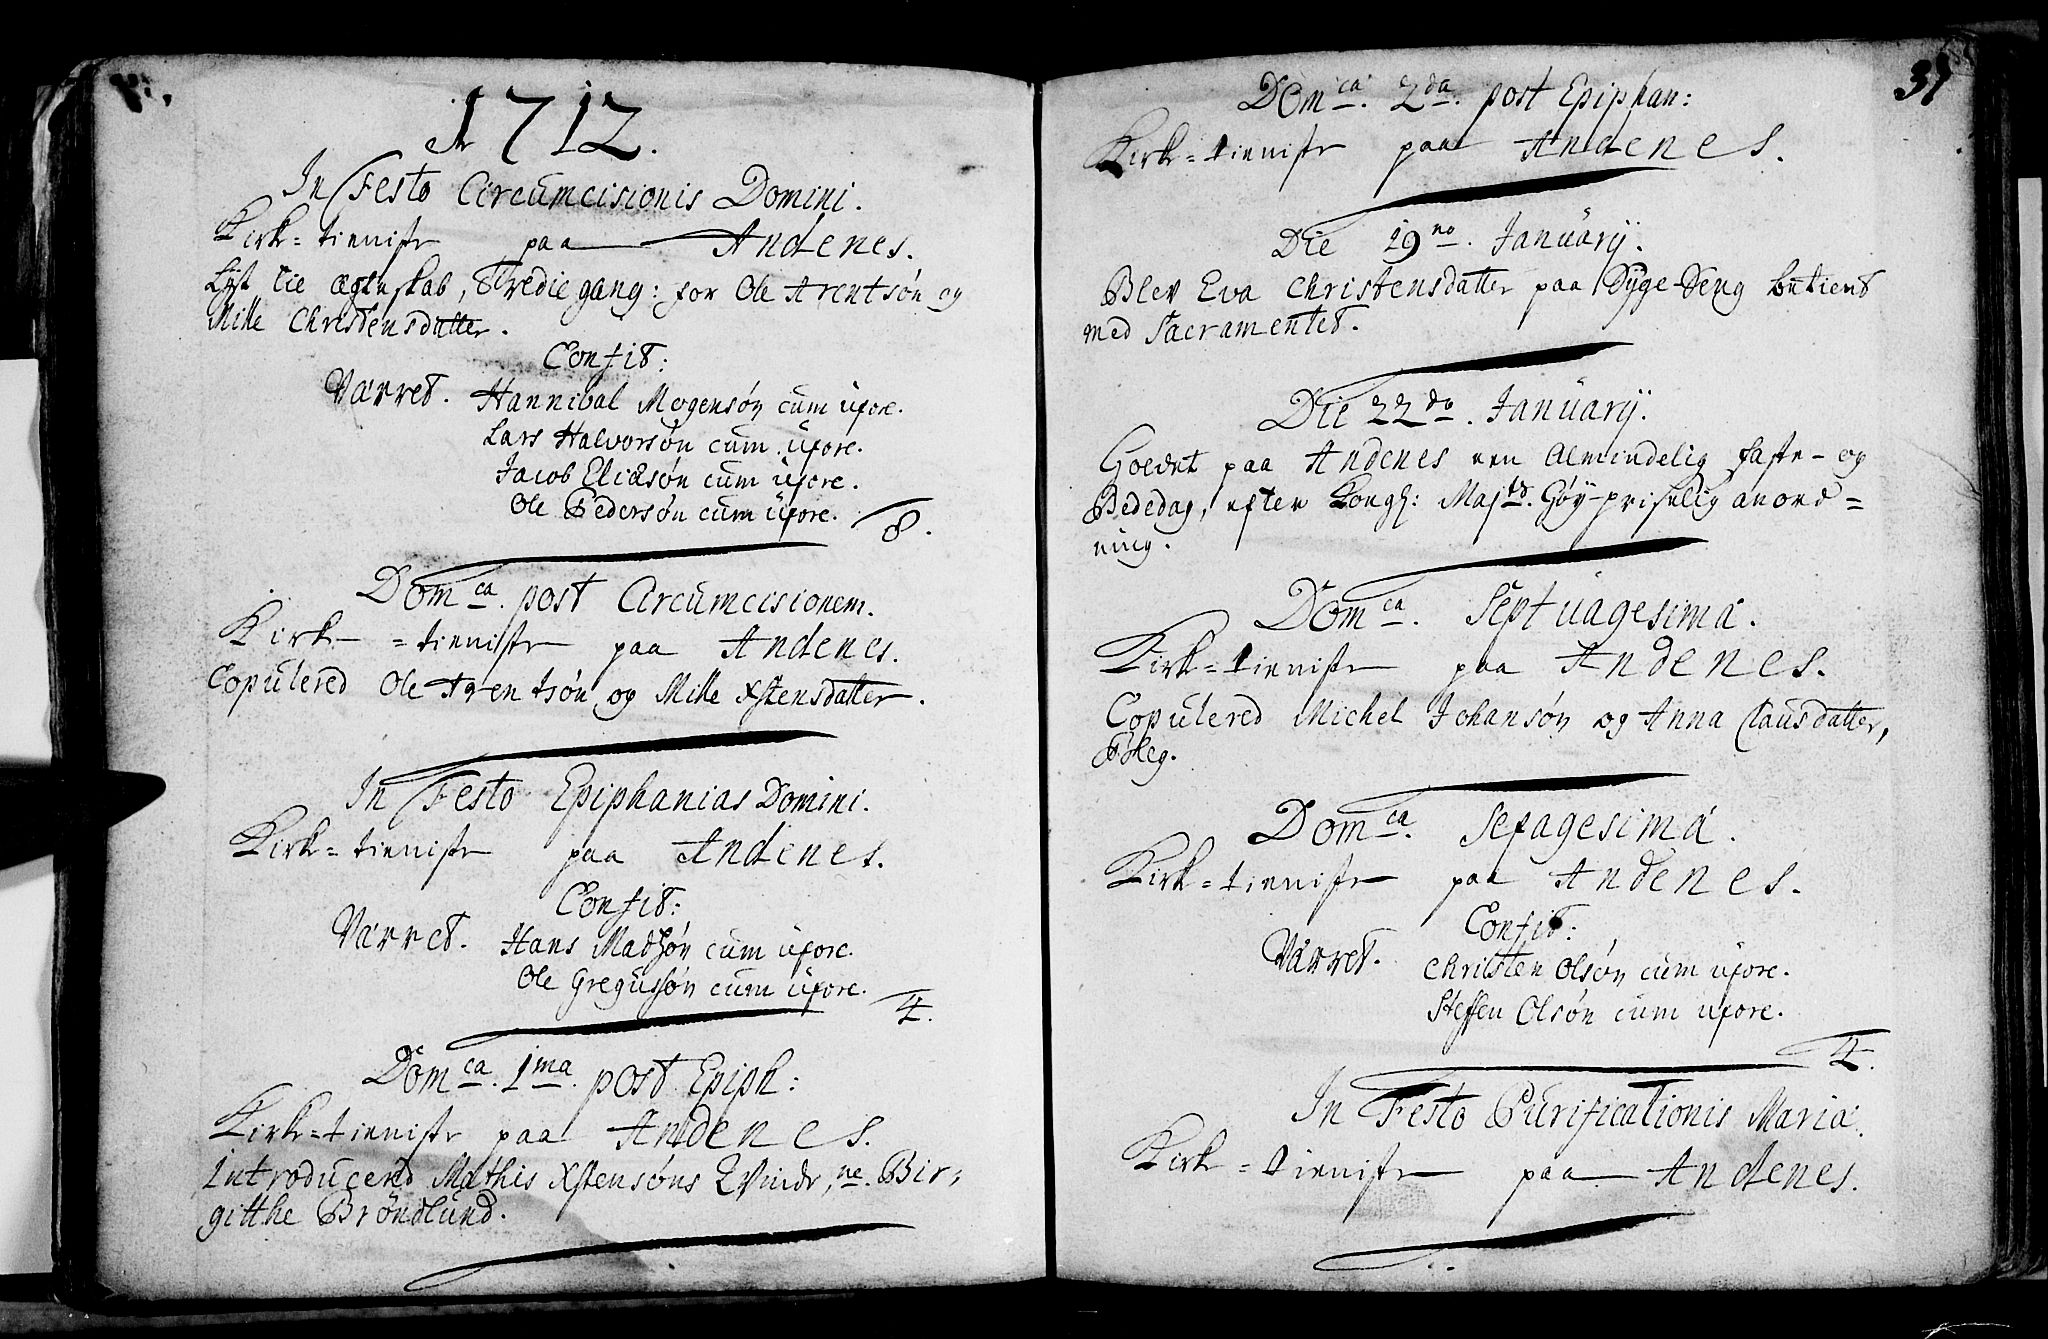 1712.
In Festo Circumcisionis Domini.
Kirk=tieniste paa Andenes.
Lyst til ægteskab, Tredie gang: for Ole Arentsøn og
Mille Christensdatter.
Confit:
Værret. Hannibal Mogensøn cum uxore.
Lars Halvorsøn cum uxore.
Jacob Eliæsøn cum uxore.
Ole Pedersøn cum uxore.
8.
Domca. post Circumcisionem.
Kirk-=tieniste paa Andenes.
Copulered Ole Arentsøn og Mille Xstensdatter.
In Festo Epiphanias Domini.
Kirk=tieniste paa Andenes.
Confit:
Værret. Hans Madsøn cum uxore.
Ole Gregussøn cum uxore.
4.
Domca. 1ma. post Epiph:
Kirk=tieniste paa Andenes.
Introducerd Mathis Xstensøns Qvinde, ne. Bir=
githe Brøndlund.
37
Domca. 2da. post Epiphan:
Kirk=tieniste paa Andenes.
Die 19no. Januarij.
Blev Eva Christensdatter paa Syge-Seng betient
med Sacramentet.
Die 22do. Januarij.
Holdet paa Andenes een Almindelig faste- og
Bededag, efter Kongl: Majts. Høy-priselig anord=
ning.
Domca. Septuagesima.
Kirk=tieniste paa Andenes.
Copulered Michel Johansøn og Anna Clausdatter,
Domca. Sexagesima.
Kirk=tieniste paa Andenes.
Confit:
Værret. Christen Olsøn cum uxore.
Steffen Olsøn cum uxore.
4.
In Festo Purificationis Mariæ.
Kirk=tieniste paa Andenes.